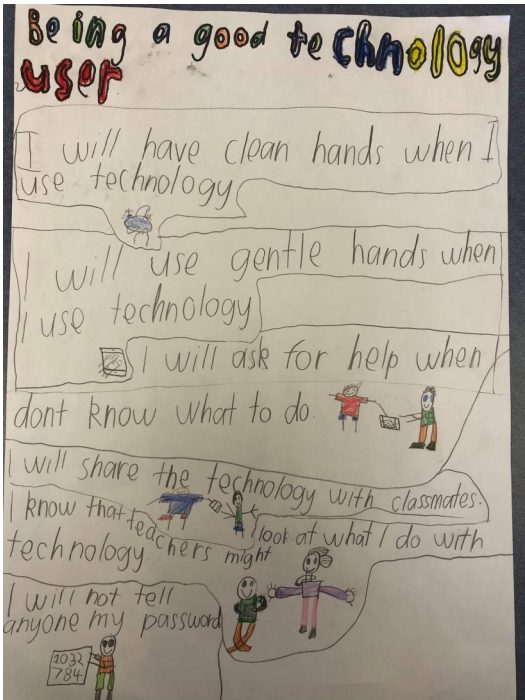 Being a good technology
user
I will have clean hands when I
use technology
I will use gentle hands when
I use technology
I will ask for help when I
dont know what to do.
I will share the technology with classmates.
I know that teachers might look at what I do with
technology.
I will not tell
anyone my password
1032
784